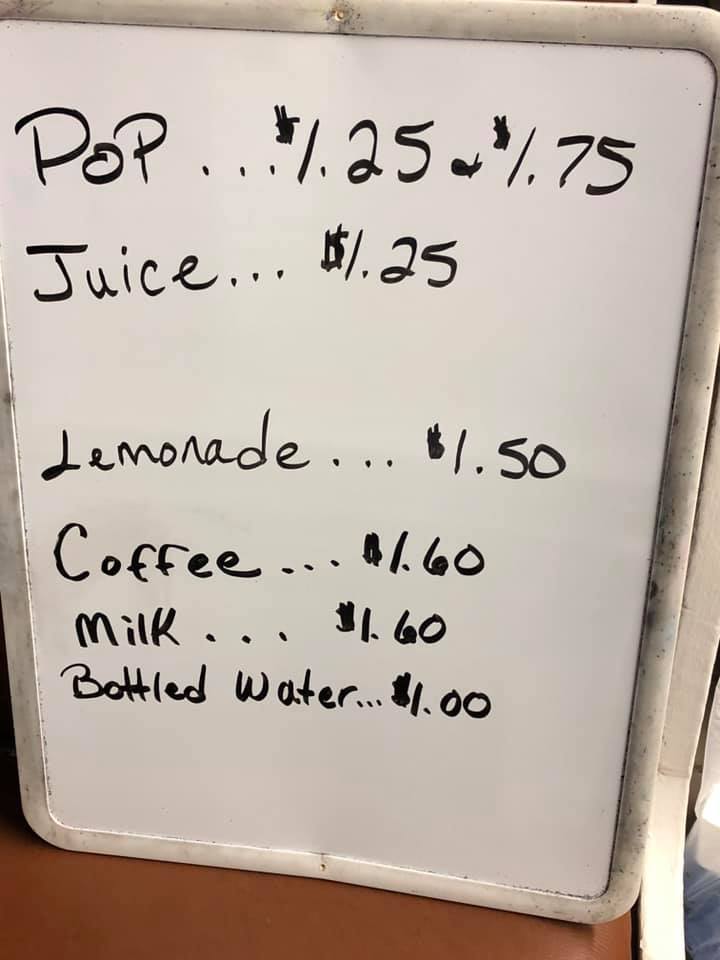 POP ... $1.25 & $1.75
Juice... $1.25
Lemonade... $1.50
Coffee... $1.60
Milk... $1.60
Bottled Water... $1.00